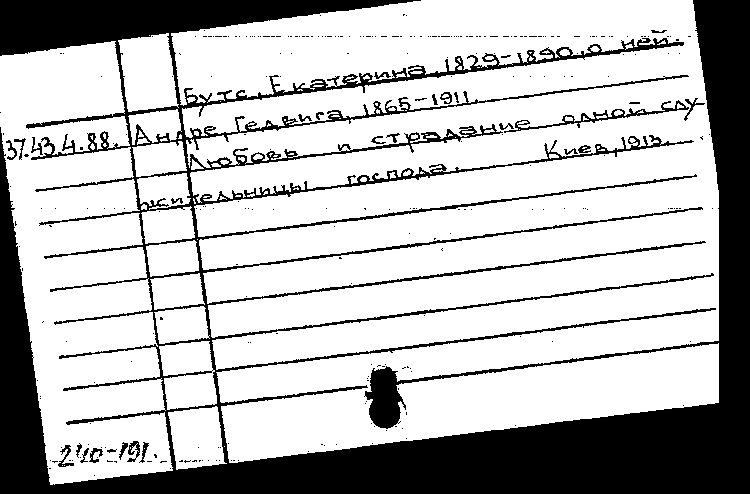 Бутс, Екатерина, 1829-1890, о ней.
37.43.4.88. Андре, Гедвига, 1865-1911.
Любовь и страдание одной слу-
жительницы господа. Киев, 1913.
240-191.